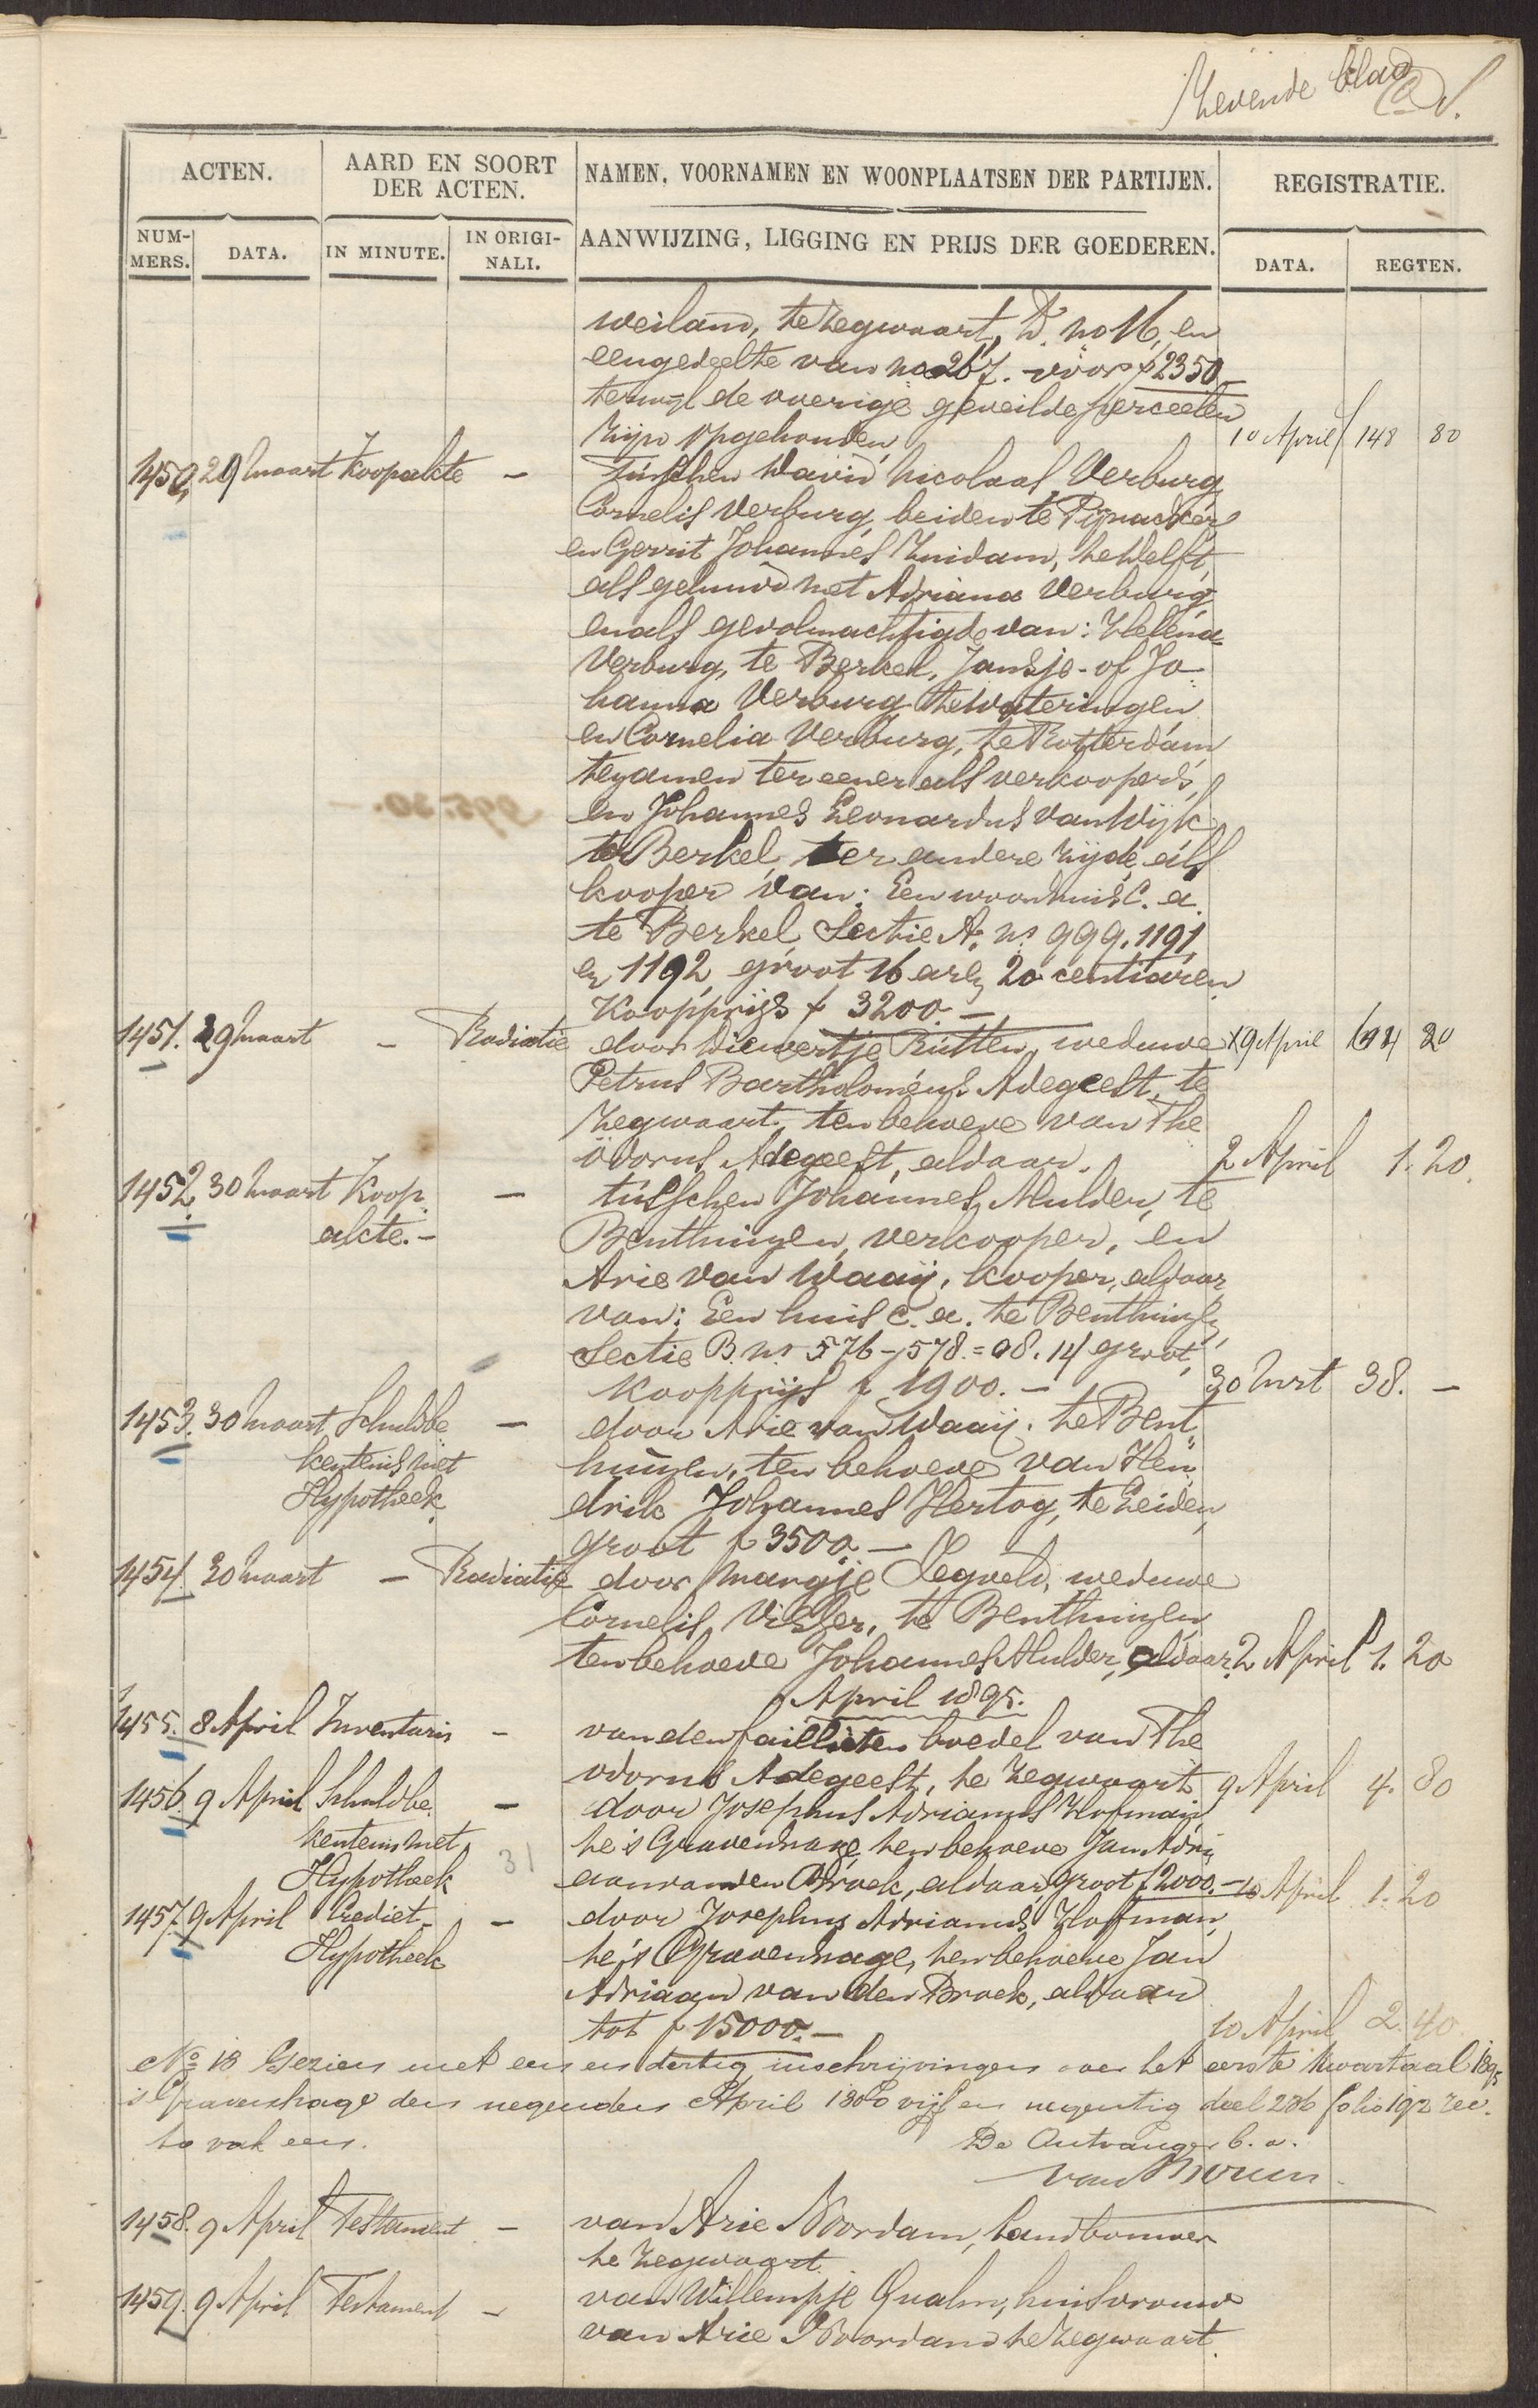 Zevende blad
ACTEN. AARD EN SOORT DER ACTEN. NAMEN, VOORNAMEN EN WOONPLAATSEN DER PARTIJEN. REGISTRATIE.
NUM-MERS. DATA. IN MINUTE. IN ORIGI-NALI. AANWIJZING, LIGGING EN PRIJS DER GOEDEREN. DATA. REGTEN.
weiland, te Zegwaart, D. no 16, en
een gedeelte van no 267. voor f 2350.-
terwijl de overige geveilde perceelen
zijn opgehouden, 10 April 148 80
1450, 29 Maart Koopakte - Tusschen David Nicolaas Verburg,
Cornelis Verburg, beiden te Pijnacker
en Gerrit Johannes Zuidam, te Delft,
als gehuwd met Adriana Verburg
en als gevolmachtigde van: Helena
Verburg, te Berkel, Jansje- of Jo
hanna Verburg te Wateringen
en Cornelia Verburg, te Rotterdam
tezamen ter eener als verkoopers,
en Johannes Leonardus van Wijk,
te Berkel, ter andere zijde als
kooper van: Een woonhuis c. a.
te Berkel, Sectie A. ns 999, 1191,
en 1192, groot 16 aren 20 centiaren
Koopprijs f 3200.-
1451. 29 Maart - Radiatie door Diewertje Rutten, weduwe 9 April 80
Petrus Bartholomeus Adegeest, te
Zegwaart, ten behoeve van The
odorus Adegeest, aldaar. 2 April 1. 20.
1452. 30 Maart Koop - tusschen Johannes Mulder, te
akte.- Benthuizen, verkooper, en
Arie van Waaij, kooper, aldaar
van: Een huis c. a. te Benthuizen,
Sectie B. ns 576-578. = 08. 14 groot,
koopprijs f 1900.- 30 Mrt 38. -
1453. 30 Maart Schuldbe - door Arie van Waaij. te Bent
kentenis met huizen, ten behoeve van Hen
Hypotheek drik Johannes Hertog, te Leiden,
groot f 3500.-
1454. 30 Maart - Radiatie door Marrigje Zegveld, weduwe
Cornelis Visser, te Benthuizen
ten behoeve Johannes Mulder, aldaar. 2 April 1. 20
April 1895.
1455. 8 April Inventaris - van den faillieten boedel van The
odorus Adegeest, te Zegwaart 9 April 4. 80
1456. 9 April Schuldbe - door Josephus Adrianus Hofman
kentenis met te 's Gravenhage, ten behoeve Jan Adri
Hypotheek 31 aan van den Broek, aldaar, groot f 2000.- 10 April 1. 20
1457. 9 April Crediet - door Josephus Adrianus Hofman,
Hypotheek te 's Gravenhage, ten behoeve Jan
Adriaan van den Broek, aldaar
tot f 15000.- 10 April 2. 40
No 18 Gezien met een en dertig inschrijvingen over het eerste kwartaal 1895
's Gravenhage den negenden April 1800 vijf en negentig deel 286 folio 192 rec
to vak een. De Ontvanger b. a.
1458. 9 April Testament - van Arie Noordam, landbouwer
te Zegwaart.
1459. 9 April Testament - van Willempje Qualm, huisvrouw
van Arie Noordam te Zegwaart.